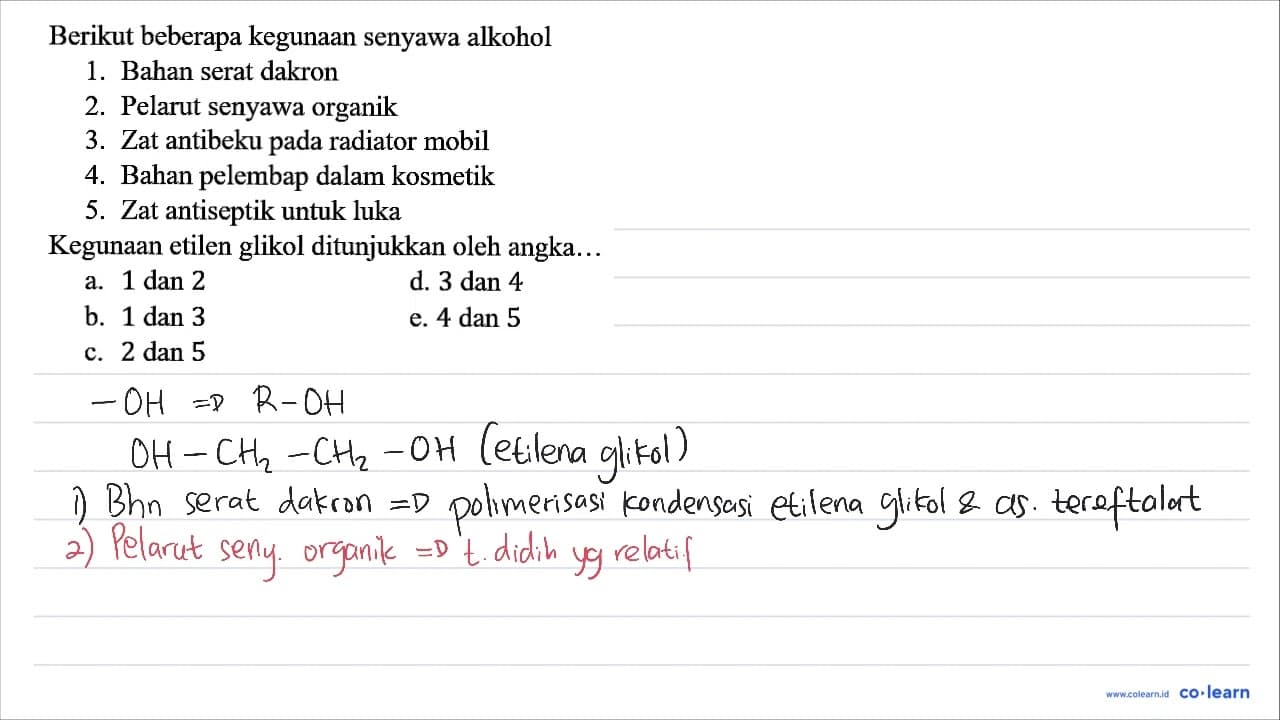 Berikut beberapa kegunaan senyawa alkohol
1. Bahan serat dakron
2. Pelarut senyawa organik
3. Zat antibeku pada radiator mobil
4. Bahan pelembap dalam kosmetik
5. Zat antiseptik untuk luka
Kegunaan etilen glikol ditunjukkan oleh angka...
a. 1 dan 2 d. 3 dan 4
b. 1 dan 3 e. 4 dan 5
c. 2 dan 5
-OH => R-OH
OH-CH₂-CH₂-OH (etilena glikol)
1) Bhn serat dakron => polimerisasi kondensasi etilena glikol & as. tereftalat
2) Pelarut seny. organik => t. didih yg relatif
www.colearn.id co·learn